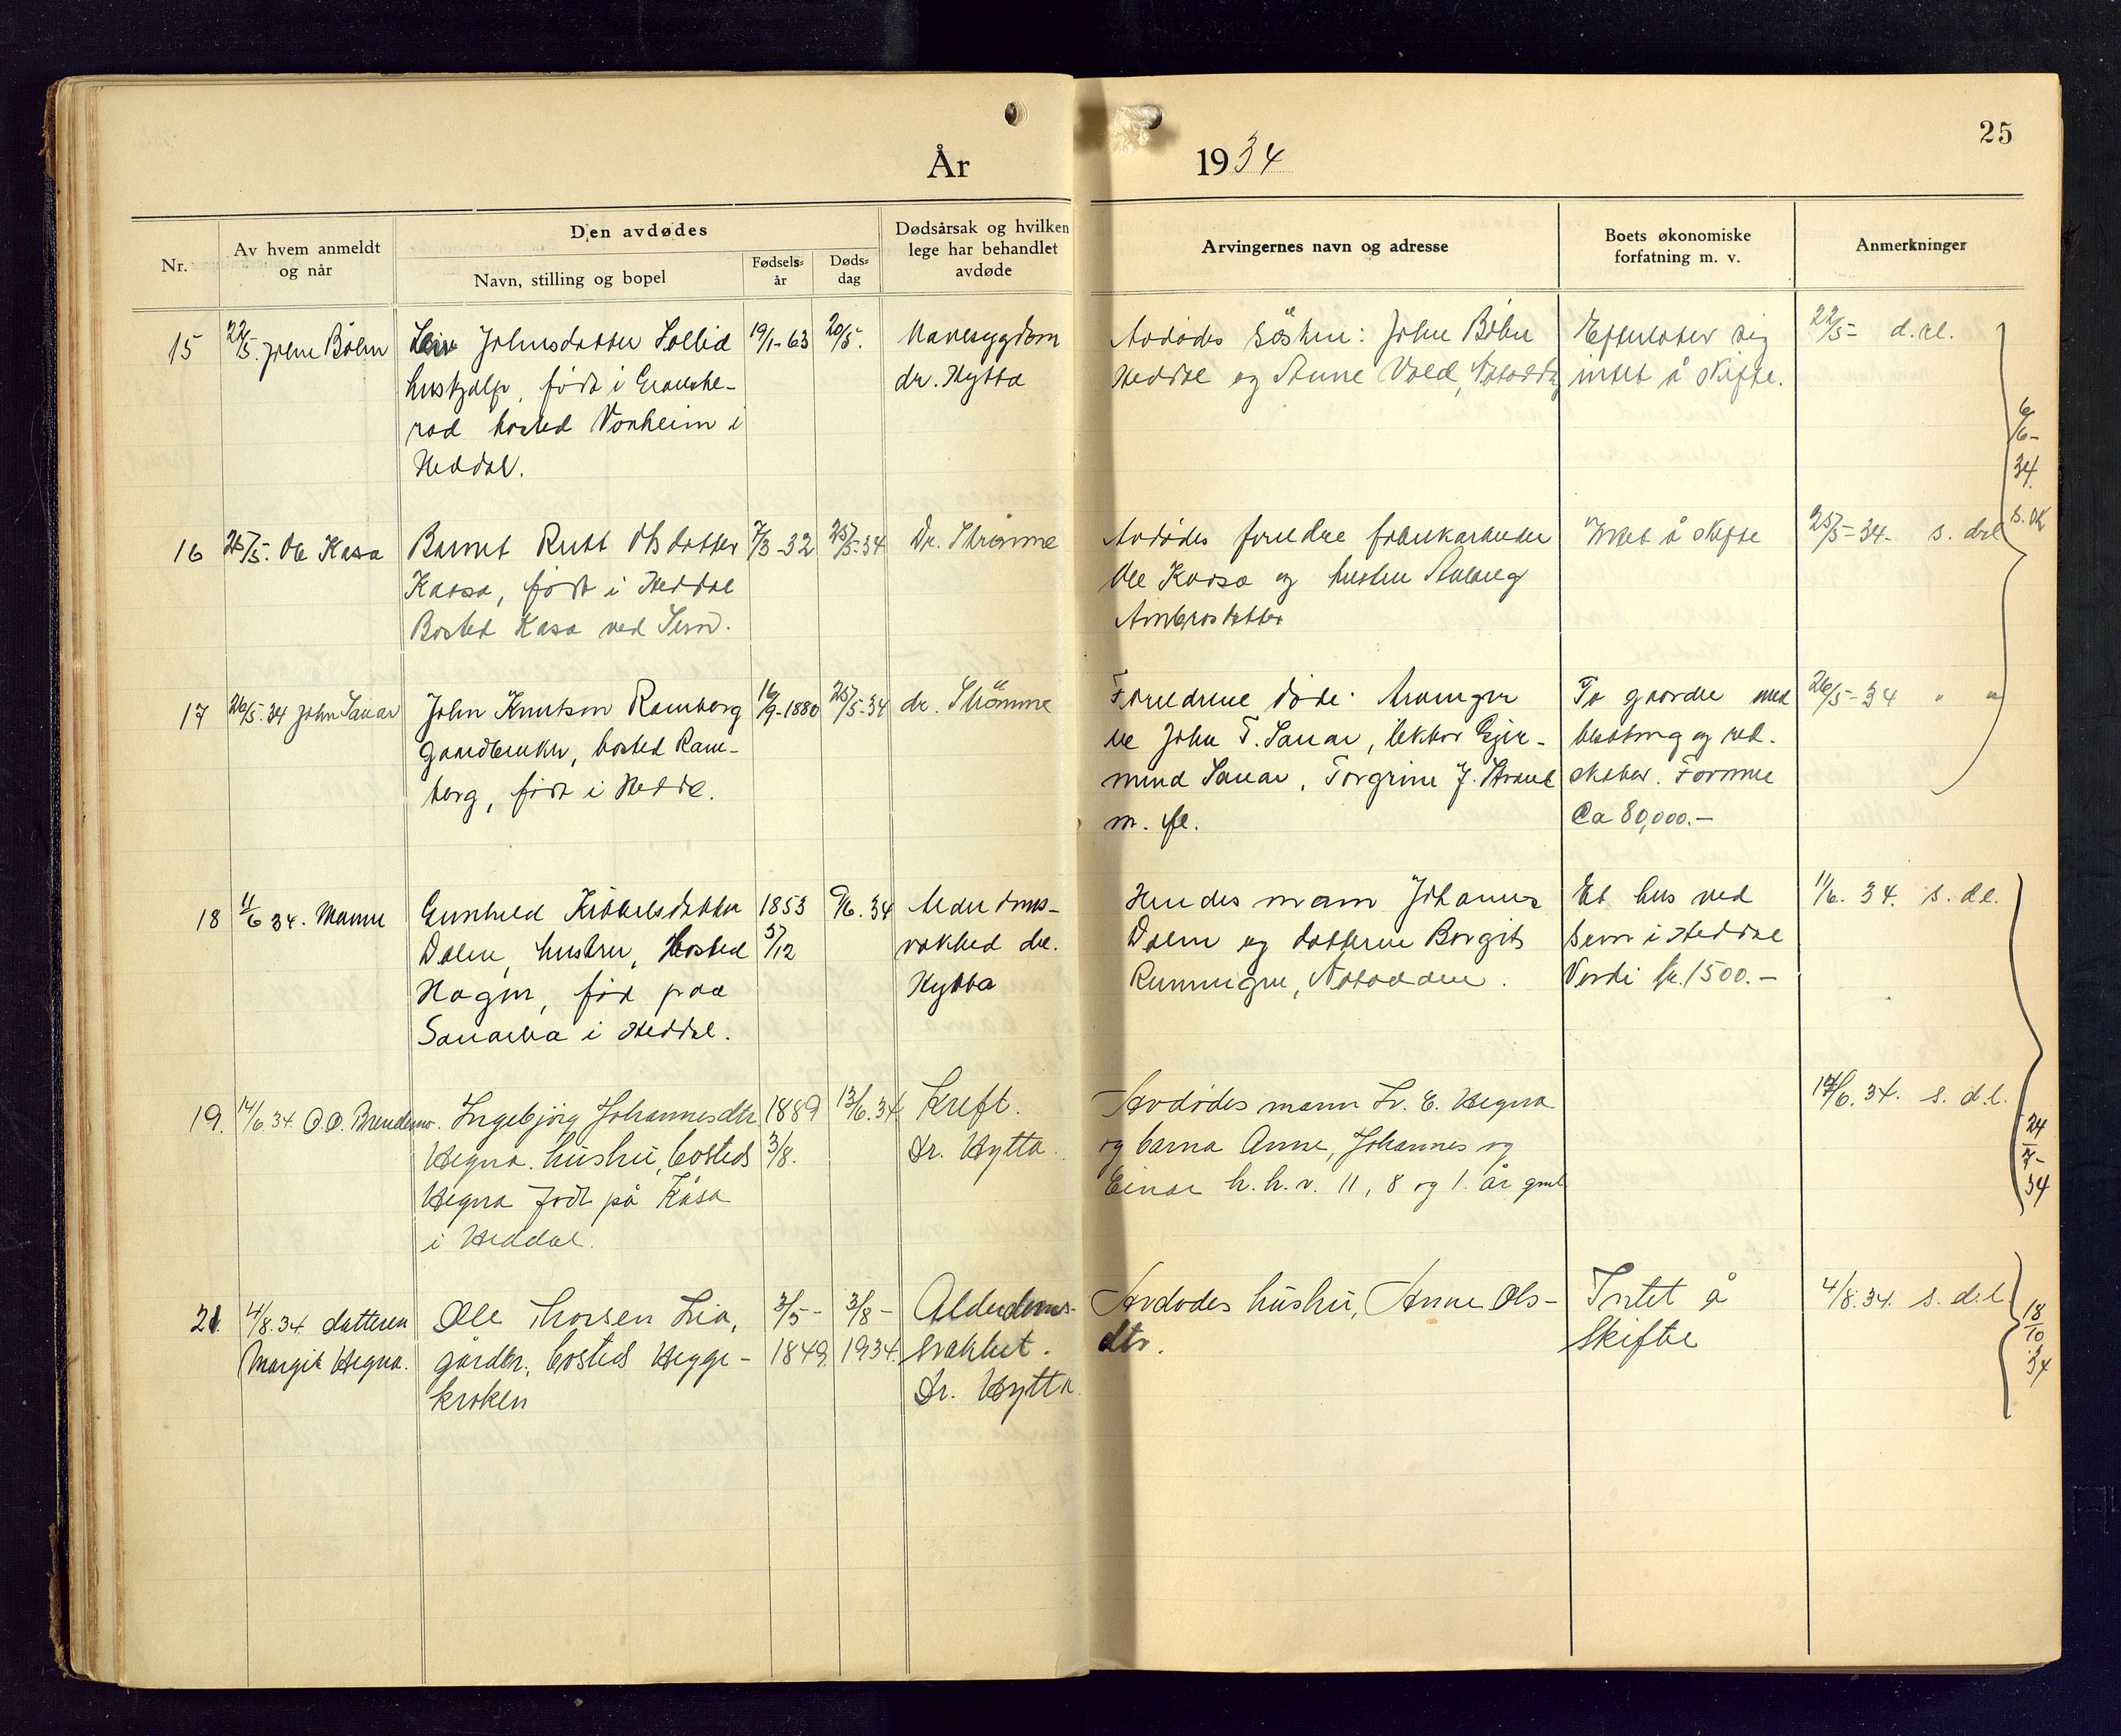 25
År 1934
Nr.
Av hvem anmeldt og når
Den avdødes
Navn, stilling og bopel
Fødselsår
Dødsdag
Dødsårsak og hvilken lege har behandlet avdøde
Arvingernes navn og adresse
Boets økonomiske forfatning m. v.
Anmerkninger
15
22/5. John Bølm
Johnsdatter Lollid
hushjelp, født i Gransherad
bosted Vonheim i
Heddal.
19/1-63
20/5.
Mavesygdom
dr. Hytta
Avdødes søsken: John
Heddal og Anne Vold, Notodden
Efterlater sig
intet å skifte.
22/5- d.rl.
6/6-34.
16
25/5. Ole Kasa
Barnet Rutt Olsdatter
Kaasa, født i Heddal
Bosted Kasa ved Sem.
7/3-32
25/5-34
Dr. Strømme
Avdødes foreldre fabrikarbeider
Ole Kaasa og hustru Aslaug
Ambrosdatter
Intet å skifte
25/5-34. s. d.l.
17
26/5.34 John Sauar
John Knutson Ramberg
Gaardbruker, bosted Ramberg,
født i Heddal.
16/9-1880
25/5-34
dr. Strømme
Foreldrene døde. Arvinger
er John T. Sauar, lektor Gjermund
Sauar, Torgrim J. Strand
m. fl.
To gaarder med
besetning og redskaber.
Formue
Ca 80,000.-
26/5-34 " "
18
11/6 34. Mannen
Gunhild Kittelsdatter
Dalen, hustru, bosted
Hagen, fød paa
Sauarlia i Heddal.
1853
5/12
9/6.34
Alderdomssvakhed
dr.
Hytta
Hendes mann Johannes
Dalen og datteren Borgit
Renningen, Notodden.
Et hus ved
Sem i Heddal
Verdi kr. 1500.-
11/6. 34. s. d.l.
19.
14/6.34. O.O. Brendemo.
Ingebjørg Johannesdtr
Hegna. hustru, bosteds
Hegna født på Kåsa
i Heddal.
1889
3/8.
13/6.34
Kreft.
Dr. Hytta.
Avdødes mann H. E. Hegna
og barna Anne, Johannes og
Einar h.h.v. 11, 8 og 1. år gml
14/6. 34. s. d.l.
24/7-34
21.
4/8.34 datteren
Margit Hegna.
Ole Thorsen Lia,
gårdbr. bosteds Heggekroken
3/5-
1849.
3/8-
1934.
Alderdomssvakhet.
Dr. Hytta.
Avdødes hustru, Anne Olsdtr.
Intet å
skifte
4/8.34. s. d.l.
18/10 34